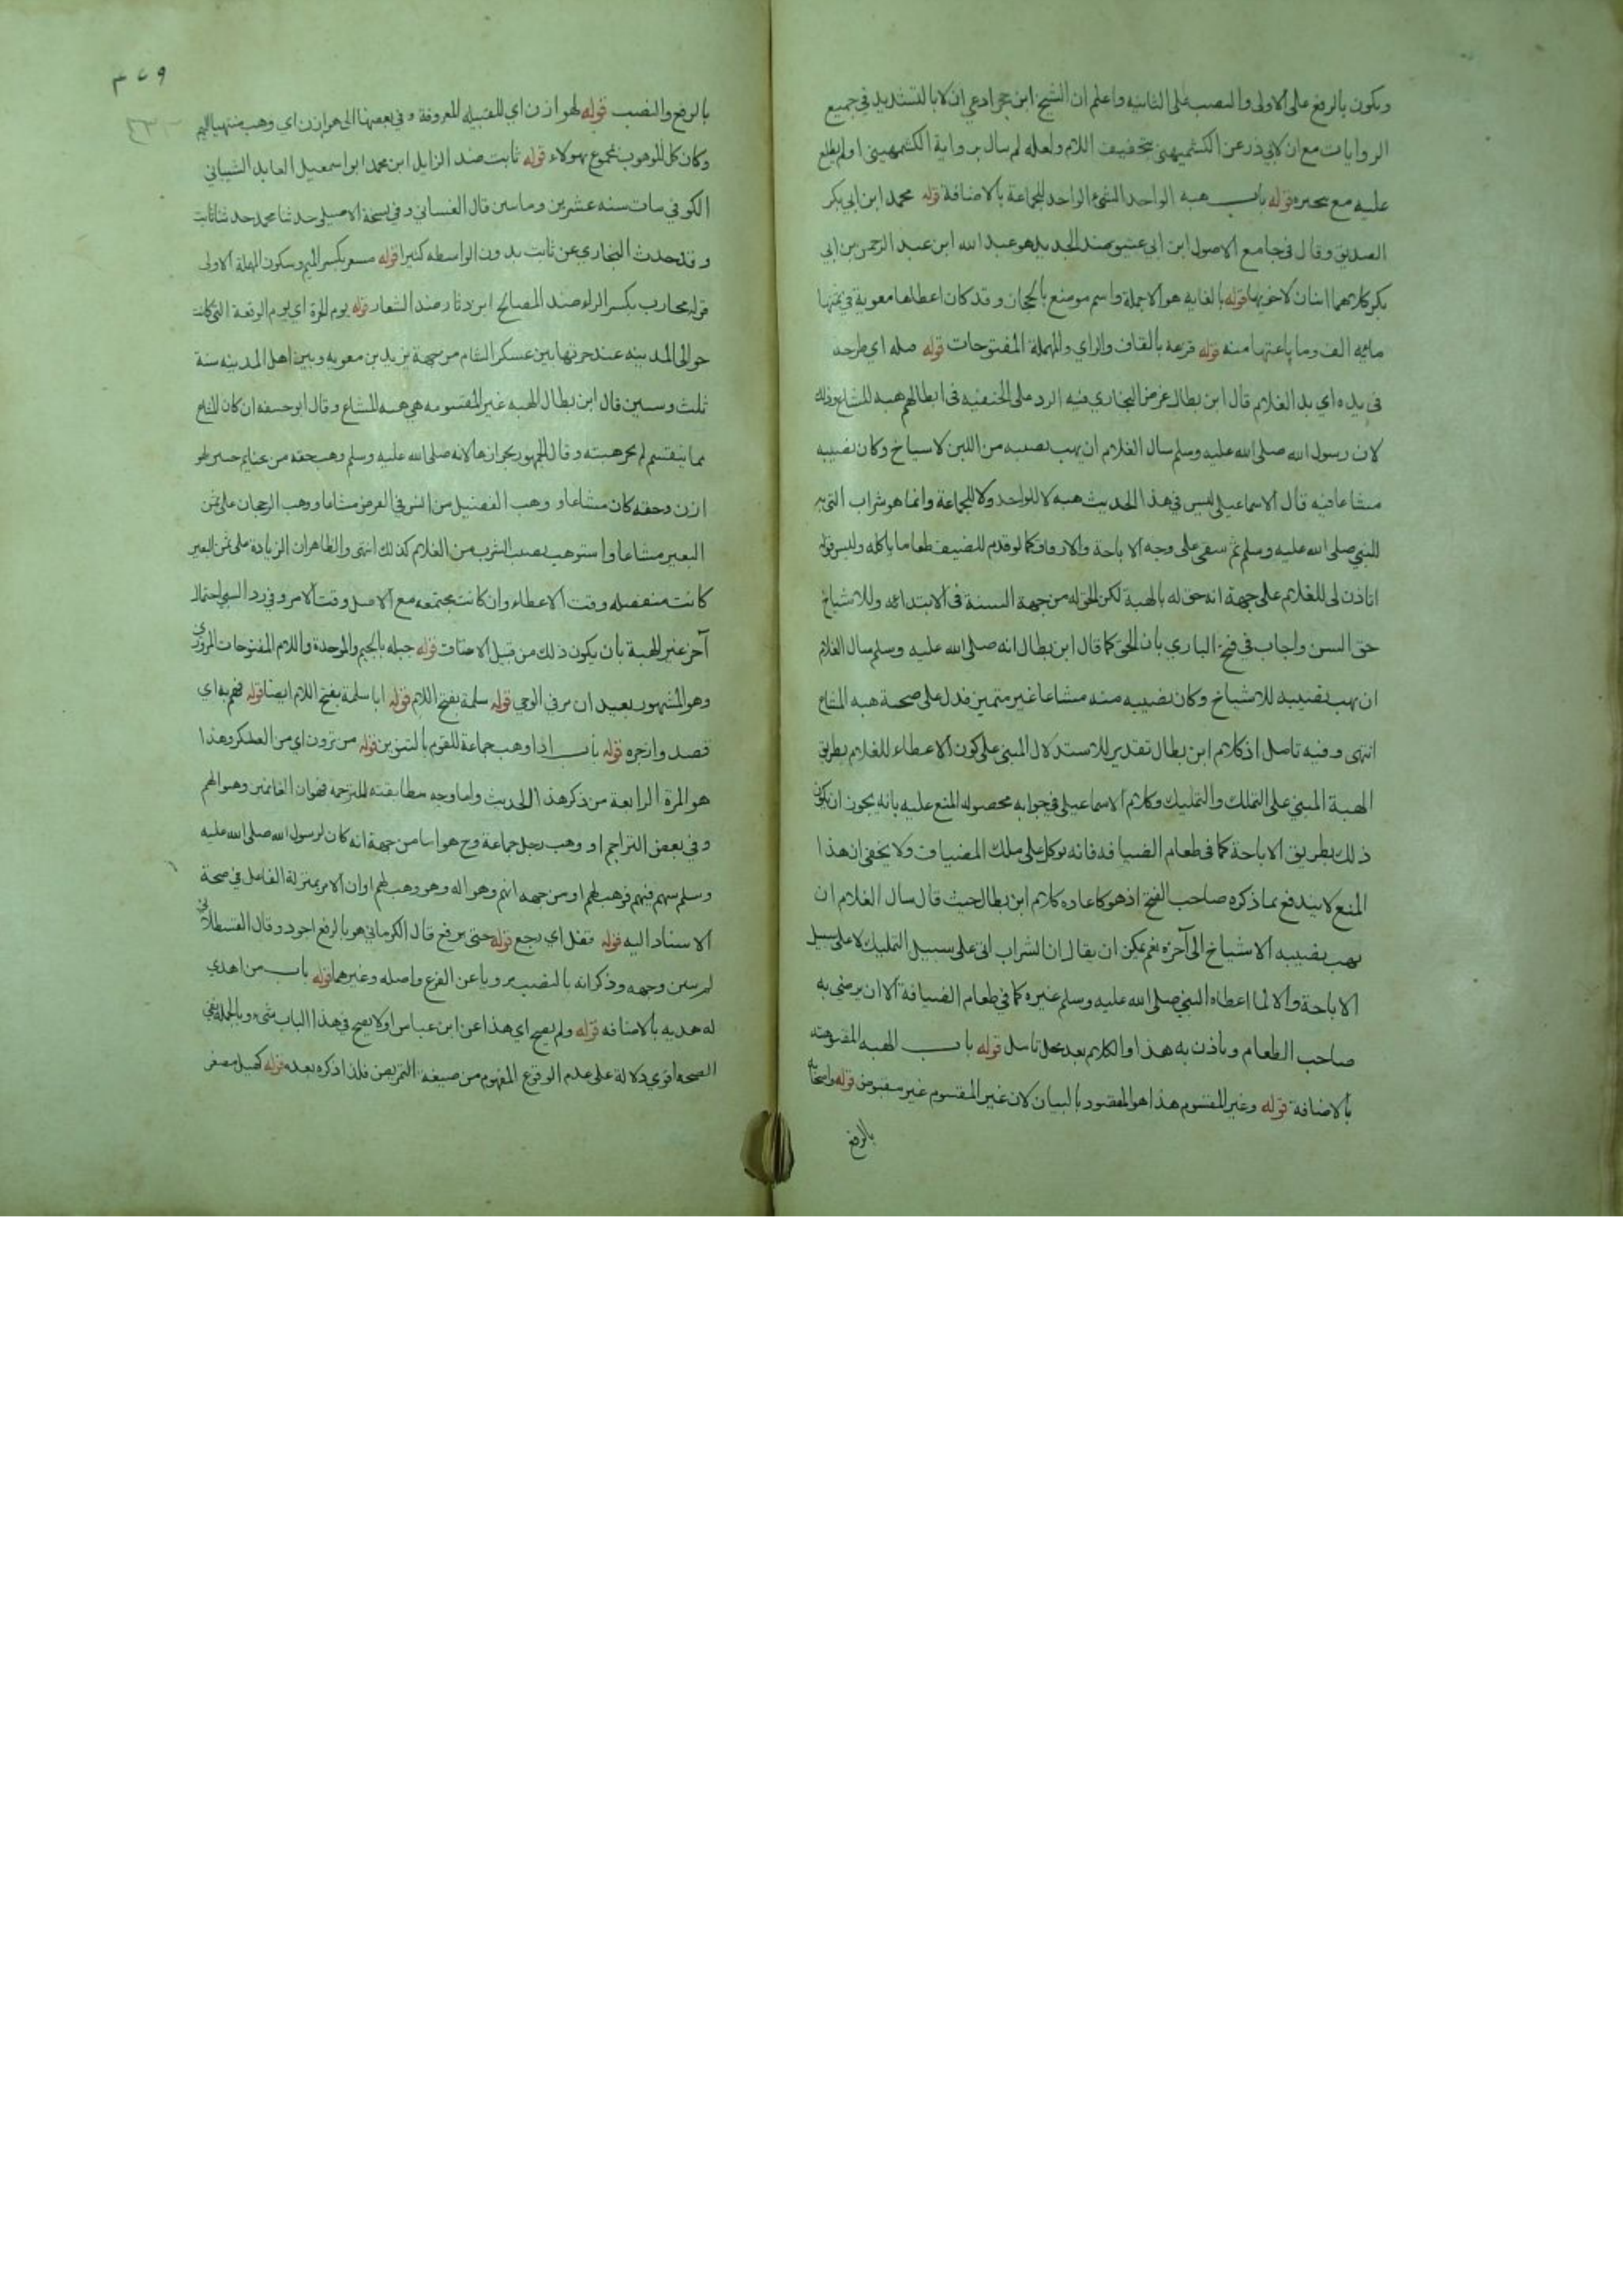 ويكون بالرفع على الاولى والنصب على الثانيه واعلم ان الشيخ ابن حجر ادعى ان لا بالتشديد في جميع
الروايات مع ان لابي ذر عن الكشميهني بتخفيف اللام ولعله لم سال برواية الكشمهيني او لم يطلع
عليه مع تبحره قوله باب هبه الواحد الشيء الواحد للجماعة بالاضافة قوله محمد ابن ابي بكر
الصديق وقال في جامع الاصول ابن ابي عتيق ضد الجديد هو عبد الله ابن عبد الرحمن بن ابي
بكر كلاهما ابنان لاخويها قوله بالغابه هو الاجمة واسم موضع بالحجاز وقد كان اعطاها معوية في ثمنها
مائه الف وما باعتها منه قوله قزعه بالقاف والزاي والمهملة المفتوحات قوله صله اي طرحه
في يده اي يد الغلام قال ابن بطال غرض البخاري فيه الرد على الحنفيه في ابطالهم هبه المشاع وذلك
لان رسول الله صلى الله عليه وسلم سال الغلام ان يهب نصيبه من اللبن لاشياخ وكان نصيبه
مشاعا فيه قال الاسماعيلي ليس في هذا الحديث هبه لا للواحد ولا للجماعة وانما هو شراب اتي به
للنبي صلى الله عليه وسلم ثم سقى على وجه الاباحة والارفاق كما لو قدم للضيف طعاما ياكله وليس قوله
اتاذن لي للغلام على جهة انه حق له بالهبة لكن الحق له من جهة السنة في الابتداء به وللاشياخ
حق السن واجاب في فتح الباري بان الحق كما قال ابن بطال انه صلى الله عليه وسلم سال الغلام
ان يهب نصيبه للاشياخ وكان نصيبه منه مشاعا غير متميز فدل على صحة هبه المشاع
انتهى وفيه تامل اذ كلام ابن بطال تقدير للاستدلال المبني على كون الاعطاء للغلام بطريق
الهبة المبني على التملك والتمليك وكلام الاسماعيلي في جوابه محصوله المنع عليه بانه يجوز ان يكون
ذلك بطريق الاباحة كما في طعام الضيافه فانه يوكل على ملك المضياف ولا يخفى ان هذا
المنع لا يندفع بما ذكره صاحب الفتح اذ هو كاعاده كلام ابن بطال حيث قال سال الغلام ان
يهب نصيبه الاشياخ الى آخره نعم يمكن ان يقال ان الشراب اتى على سبيل التمليك لا على سبيل
الاباحة والا لما اعطاه النبي صلى الله عليه وسلم غيره كما في طعام الضيافة الا ان يرضى به
صاحب الطعام وياذن به هذا والكلام بعد محل تامل قوله باب الهبه المقبوضه
بالاضافة قوله وغير المقسوم هذا هو المقصود بالبيان لان غير المقسوم غير مقبوض قوله واصحابه
بالرفع
٣٧٩
بالرفع والنصب قوله لهوازن اي للقبيله المعروفة وفي بعضها الى هوازن اي وهب منتهيا اليهم
وكان كل الموهوب لمجموع هولاء قوله ثابت ضد الزايل ابن محمد ابو اسمعيل العابد الشيباني
الكوفي مات سنه عشرين وماتين قال الغساني وفي نسخة الاصيلي حدثنا محمد حدثنا ثابت
وقد حدث البخاري عن ثابت بدون الواسطه كثيرا قوله مسعر بكسر الميم وسكون المهملة الاولى
قوله محارب بكسر الراء ضد المصالح ابن دثار ضد الشعار قوله يوم الحرة اي يوم الوقعة التي كانت
حوالى المدينه عند حرتها بين عسكر الشام من جهة يزيد بن معويه وبين اهل المدينه سنة
ثلث وستين قال ابن بطال الهبه غير المقسومه هي هبه المشاع وقال ابو حنيفه ان كان المشاع
مما ينقسم لم يجز هبته وقال الجمهور بجوازها لانه صلى الله عليه وسلم وهب حقه من غنايم حنين لهو
ازن وحقه كان مشاعا ووهب الفضل من السن في القرض مشاعا ووهب الرجحان على ثمن
البعير مشاعا واستوهب نصيب الشرب من الغلام كذلك انتهى والظاهر ان الزيادة على ثمن البعير
كانت منفصله وقت الاعطاء وان كانت مجتمعه مع الاصل وقت الامر وفي رد السبي احتمال
آخر غير الهبة بان يكون ذلك من قبيل الاعتاق قوله جبله بالجيم والموحدة واللام المفتوحات المروزي
وهو المشهور بعبدان مر في الوحي قوله سلمة بفتح اللام قوله ابا سلمة بفتح اللام ايضا قوله فهم به اي
قصد وانزجره قوله باب اذا وهب جماعة للقوم بالتنوين قوله من ترون اي من العسكر وهذا
هو المرة الرابعة من ذكر هذا الحديث واما وجه مطابقته للترجمة فهو ان الغانمين وهبوا لهم
وفي بعض التراجم او وهب رجل جماعة وح هو اما من جهة انه كان لرسول الله صلى الله عليه
وسلم سهم فيهم فوهبه لهم او من جهه انهم وهبوا له وهو وهب لهم او ان الامر بمنزلة الفاعل في صحة
الاسناد اليه قوله فقفل اي رجع قوله حتى يرفع قال الكرماني هو بالرفع اجود وقال القسطلاني
لم يبين وجهه وذكر انه بالنصب مرويا عن الفرع واصله وغيرهما قوله باب من اهدي
له هديه بالاضافه قوله ولم يصح اي هذا عن ابن عباس او لا يصح في هذا الباب شيء وبالجملة نفي
الصحه اقوى دلالة على عدم الوقوع المفهوم من صيغة التمريض فلذا ذكره بعده قوله كهيل مصغر